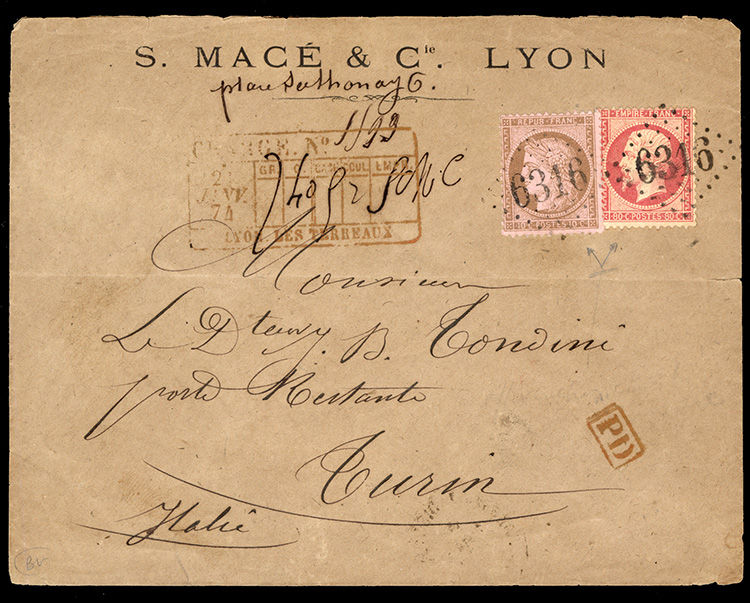 S. MACÉ & Cie. LYON
place Sathonay 6.
1193
CHARGE. No
2
JANV.
74
LYON. LES TERREAUX
REPUB. FRANC.
6316
10 C. POSTES 10 C.
EMPIRE FRANC.
6316
80 C. POSTES 80 C.
Monsieur
Le B. Tondini
poste Restante
PD
Turin
Italie
BV